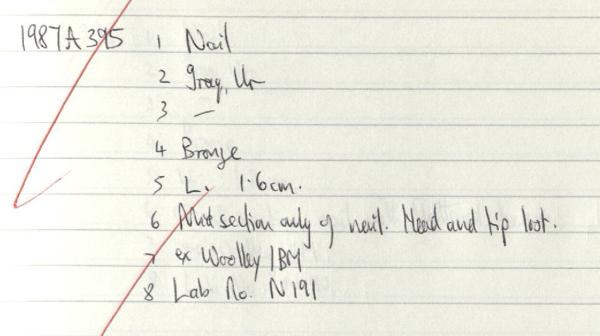 1987A395 1 Nail
2 Iraq, Ur
3 —
4 Bronze
5 L. 1.6cm.
6 Mid section only of nail. Head and tip lost.
7 ex Woolley / BM
8 Lab No. N191